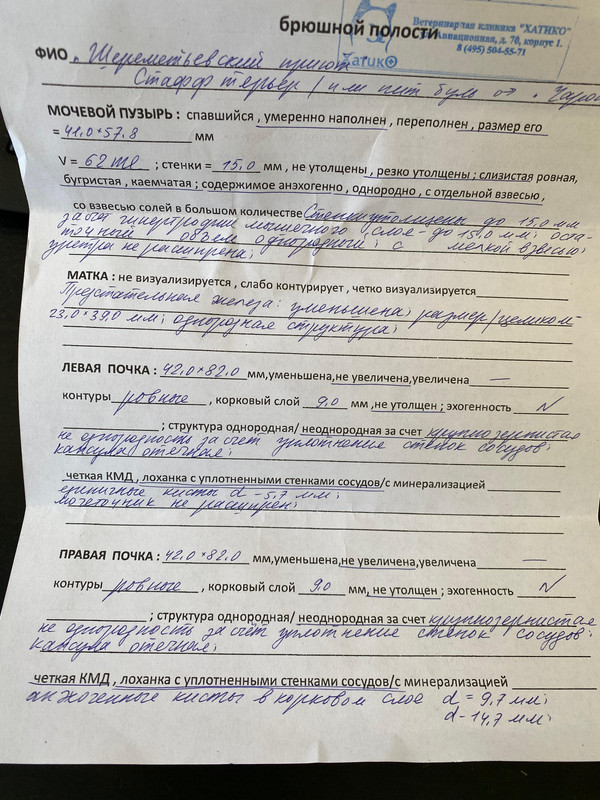 брюшной полости
Ветеринарная клиника "ХАТИКО"
Авиационная, д. 70, корпус 1.
8 (495) 504-55-71
Хатико
ФИО Шереметьевский приют
Стафф терьер / или пит буль от
МОЧЕВОЙ ПУЗЫРЬ : спавшийся , умеренно наполнен , переполнен , размер его
= 41,0*57,8 мм
V = 62 ml ; стенки = 15,0 мм , не утолщены , резко утолщены ; слизистая ровная,
бугристая , каемчатая ; содержимое анэхогенно , однородно , с отдельной взвесью ,
со взвесью солей в большом количестве Стенки утолщены до 15,0 мм
за счет гипертродии мышечного слое - до 15,0 мм; оста-
точный объем однородный; с мелкой взвесью;
уретра не расширена;
МАТКА : не визуализируется , слабо контурирует , четко визуализируется
Предстательная железа: уменьшена; размер/целиком-
23,0*39,0 мм; однородная структура;
ЛЕВАЯ ПОЧКА : 42,0*82,0 мм,уменьшена,не увеличена,увеличена —
контуры ровные , корковый слой 9,0 мм ,не утолщен ; эхогенность N
; структура однородная/ неоднородная за счет крупнозернистая
не однородность за счёт уплотнение стенок сосудов;
капсула отечная;
четкая КМД , лоханка с уплотненными стенками сосудов/с минерализацией
единичные кисты d - 5,7 мм;
мочеточник не расширен;
ПРАВАЯ ПОЧКА : 42,0*82,0 мм,уменьшена,не увеличена,увеличена —
контуры ровные , корковый слой 9,0 мм, не утолщен ; эхогенность N
; структура однородная/ неоднородная за счет крупнозернистая
не однородность за счёт уплотнение стенок сосудов;
капсула отечная;
четкая КМД , лоханка с уплотненными стенками сосудов/с минерализацией
анэхогенные кисты в корковом слое d = 9,7 мм;
d - 14,7 мм;